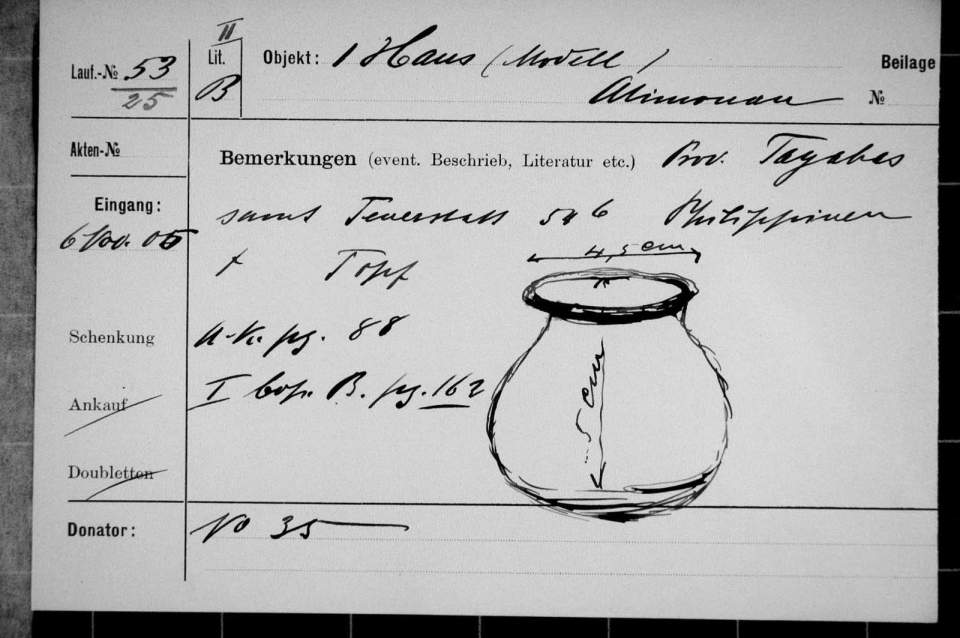 II
Lauf.-№ 53
25
Lit. B
Objekt: 1 Haus (Modell)
Atimonan
Beilage №
Akten-№
Bemerkungen (event. Beschrieb, Literatur etc.) Prov. Tayabas
Eingang:
samt Feuerstatt 546 Philippinen
+ Topf
4,5 cm
5 cm
Schenkung
pg. 88
Ankauf
I B. pg. 162
Doubletten
Donator: No 35